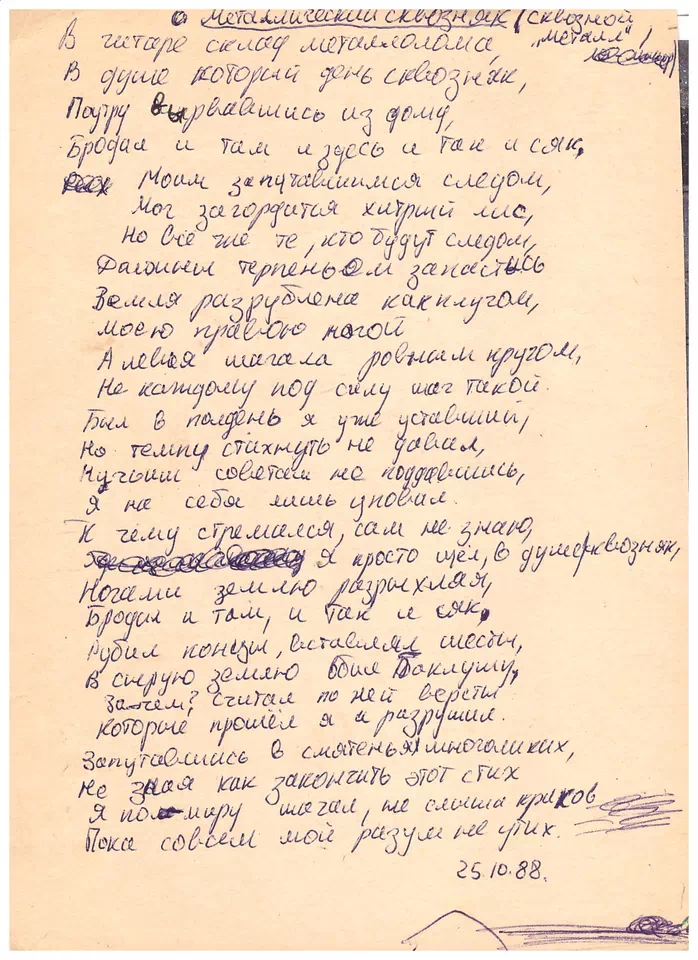 Металлический сквозняк (сквозной „металл“,
В гитаре склад металлолома,
В душе который день сквозняк,
Поутру вырвавшись из дому,
Бродил и там и здесь и так и сяк,
Моим запутавшимся следом,
Мог загордится хитрый лис,
Но всё же те, кто будут следом,
Должны терпеньем запастись
Земля разрублена как плугом,
моею правою ногой
А левая шагала ровным кругом,
Не каждому под силу шаг такой.
Был в полдень я уже уставший,
Но темпу стихнуть не давал,
Ничьим советам не поддавшись,
Я на себя лишь уповал.
К чему стремился, сам не знаю,
Я просто шёл, в душе сквозняк,
Ногами землю разрыхляя,
Бродил и там, и так и сяк,
Рубил концы, вставлял шесты,
В сырую землю бил баклушу,
Зачем? Считал по ней версты
Которые прошёл я и разрушил.
Запутавшись в смятеньях многоликих,
Не зная как закончить этот стих
Я по миру шагал, не слыша криков
Пока совсем мой разум не утих.
25.10.88.